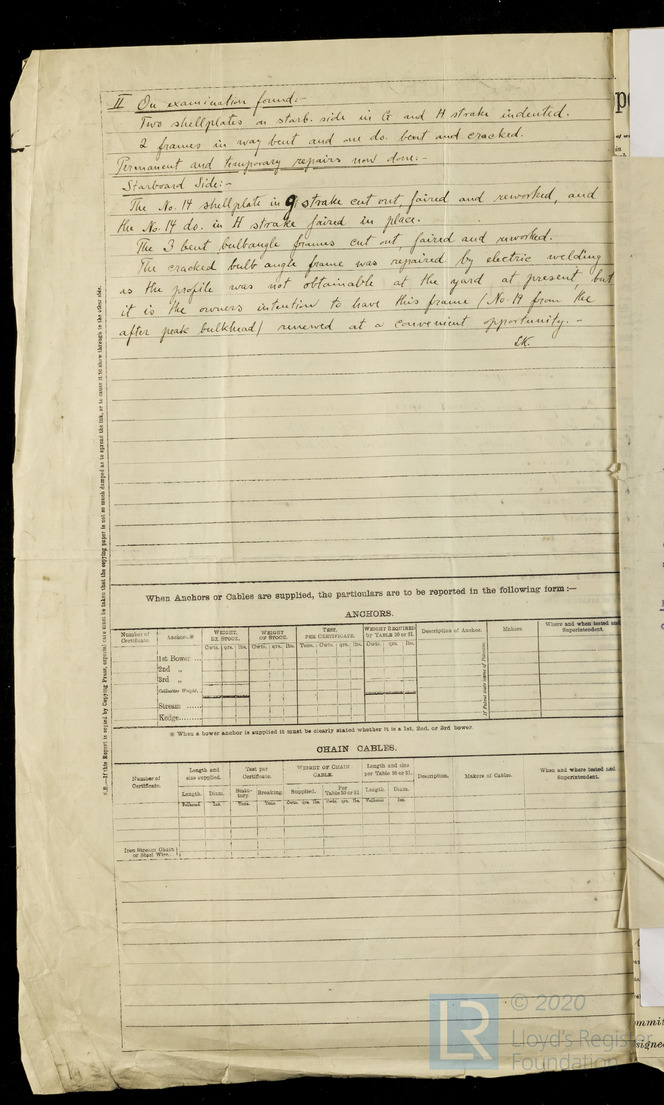 II On examination found:-
Two shellplates on starb. side in G and H strake indented.
2 frames in way bent and one do. bent and cracked.
Permanent and temporary repairs now done:-
Starboard Side:-
The No. 14 shellplate in G strake cut out, faired and reworked, and
the No. 14 do. in H strake faired in place.
The 3 bent bulbangle frames cut out, faired and reworked.
The cracked bulb angle frame was repaired by electric welding
as the profile was not obtainable at the yard at present but
it is the owners intention to have this frame (No. 14 from the
after peak bulkhead) renewed at a convenient opportunity. -
N.B.—If this Report is copied by Copying Press, especial care must be taken that the copying paper is not so much damped as to spread the ink, or to cause it to show through to the other side.
When Anchors or Cables are supplied, the particulars are to be reported in the following form:—
ANCHORS.
Number of Certificate. Anchors.※ WEIGHT, EX STOCK. WEIGHT OF STOCK. TEST, PER CERTIFICATE. WEIGHT REQUIRED by TABLE 30 or 31. Description of Anchor. Makers. Where and when tested and Superintendent.
Cwts. qrs. lbs. Cwts. qrs. lbs. Tons. Cwts. qrs. lbs. Cwts. qrs. lbs.
1st Bower ...
2nd „
3rd „
Collective Weight.
Stream ......
Kedge........
※ When a bower anchor is supplied it must be clearly stated whether it is a 1st, 2nd, or 3rd bower.
CHAIN CABLES.
Number of Certificate. Length and size supplied. Test per Certificate. WEIGHT OF CHAIN CABLE. Length and size per Table 30 or 31. Description. Makers of Cables. When and where tested and Superintendent.
Length. Diam. Statutory. Breaking. Supplied. Per Table 30 or 31. Length. Diam.
Fathoms. Ins. Tons. Tons. Cwts. qrs. lbs. Cwts. qrs. lbs. Fathoms. Ins.
Iron Stream Chain or Steel Wire.
LR
© 2020
Lloyd's Register
Foundation